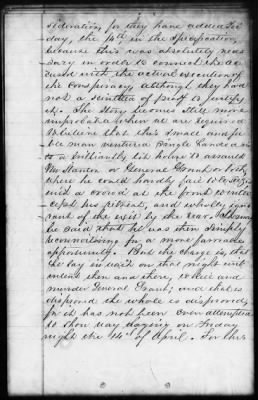 federation, for they have added to
day, the 14th in the specification,
because this was absolutely neces
sary in order to connect the ac
cused with the actual execution of
the conspiracy, although they had
not a scintilla of proof to justify
it. The story becomes still more
improbable when we are required
to believe that this small and fee
ble man ventured single handed in
to a brilliantly lit house to assault
Mr Stanton or General Grant or both,
where he could hardly fail to
a crowd at the front to inter
cept his retreat, and wholly igno
rant of the exit by the rear.
be said that he was then simply
reconnoitering for a more favorable
opportunity. But the charge is, that
he lay in wait on that night with
intent then and there, to kill and
murder General Grant; and that is
disproved the whole is disproved,
for it has not been even attempted
to show any dogging on Friday
night the 14th of April. For this